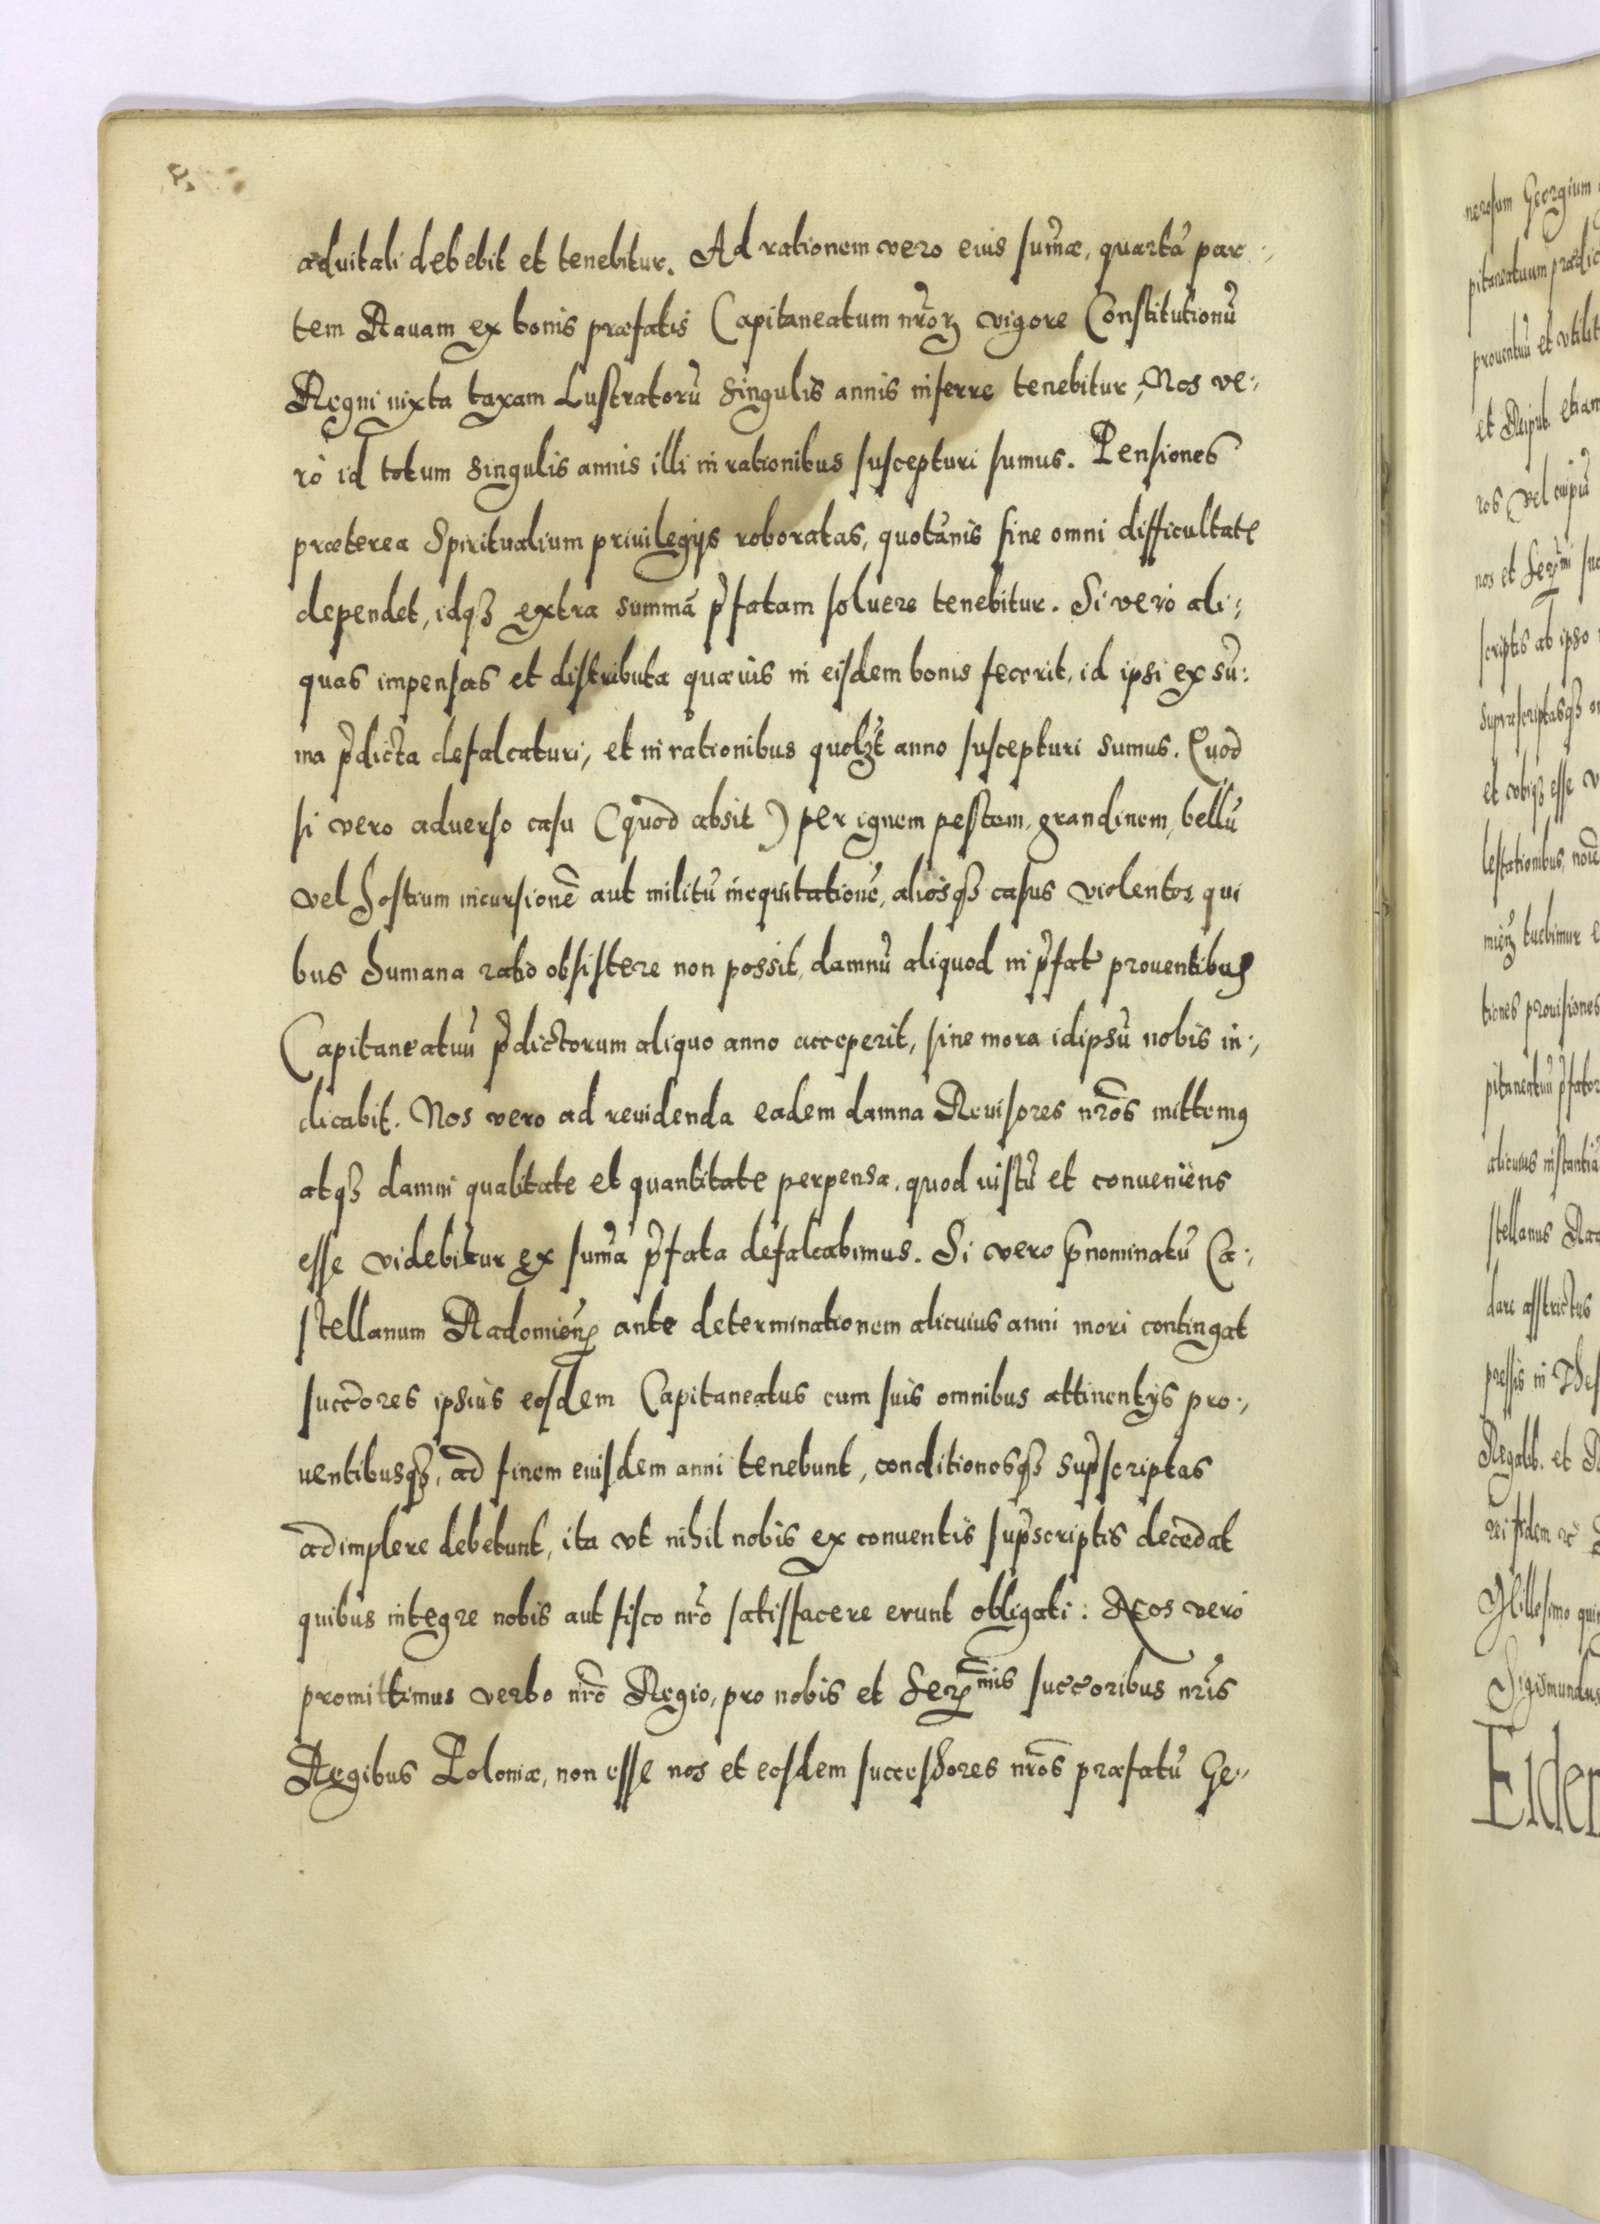 aduitali debebit et tenebitur. Ad rationem vero eius sum̃æ, quartã par-
tem Rauam ex bonis præfatis Capitaneatum nr̃orꝫ vigore Constitutionũ
Regni iuxta taxam Lustratorũ singulis annis inferre tenebitur, Nos ve-
rò id totum singulis annis illi in rationibus suscepturi sumus. Pensiones
præterea Spiritualium priuilegijs roboratas, quotãnis sine omni difficultate
dependet, idqꝫ extra summã p̃fatam soluere tenebitur. Si vero ali-
quas impensas et distributa quæuis in eisdem bonis fecerit, id ipsi ex sũ-
ma p̃dicta defalcaturi, et in rationibus quolꝫt anno suscepturi sumus. Quod
si vero aduerso casu (quod absit) per ignem pestem, grandinem, bellũ
vel hostium incursionẽ aut militũ inequitationẽ, aliosqꝫ casus violentos qui
bus humana ratio obsistere non possit, damnũ aliquod in p̃fat prouentibus
Capitaneatuũ p̃dictorum aliquo anno acceperit, sine mora idipsũ nobis in-
dicabit. Nos vero ad reuidenda eadem damna Reuisores nr̃os mittemꝰ
atqꝫ damni qualitate et quantitate perpensa, quod iustũ et conueniens
esse videbitur ex sum̃a p̃fata defalcabimus. Si vero p̃nominatũ Ca-
stellanum Radomieñ ante determinationem alicuius anni mori contingat
succ̃ores ipsius eosdem Capitaneatus cum suis omnibus attinentijs pro-
uentibusqꝫ, ad finem eiusdem anni tenebunt, conditionesqꝫ sup̃scriptas
adimplere debebunt, ita vt nihil nobis ex conuentis sup̃scriptis decedat
quibus integre nobis aut fisco nr̃o satisfacere erunt obligati: Nos vero
promittimus verbo nr̃o Regio, pro nobis et Serꝫmis succ̃oribus nr̃is
Regibus Poloniæ, non esse nos et eosdem successores nr̃os præfatũ Ge-
nerosum Georgium
pitaneatuum prædic
prouentuũ et vtilit
et Reipub. etiam
ros vel cuipiã
scriptis ab ipso
supræscriptasqꝫ
lestationibus,
tuebimur
tiones prouisiones
pitaneatuũ p̃fator
alicuius instantiã
stellanus
dare astrictus
pressis in
Regalib. et
Sigismundus
Eiden